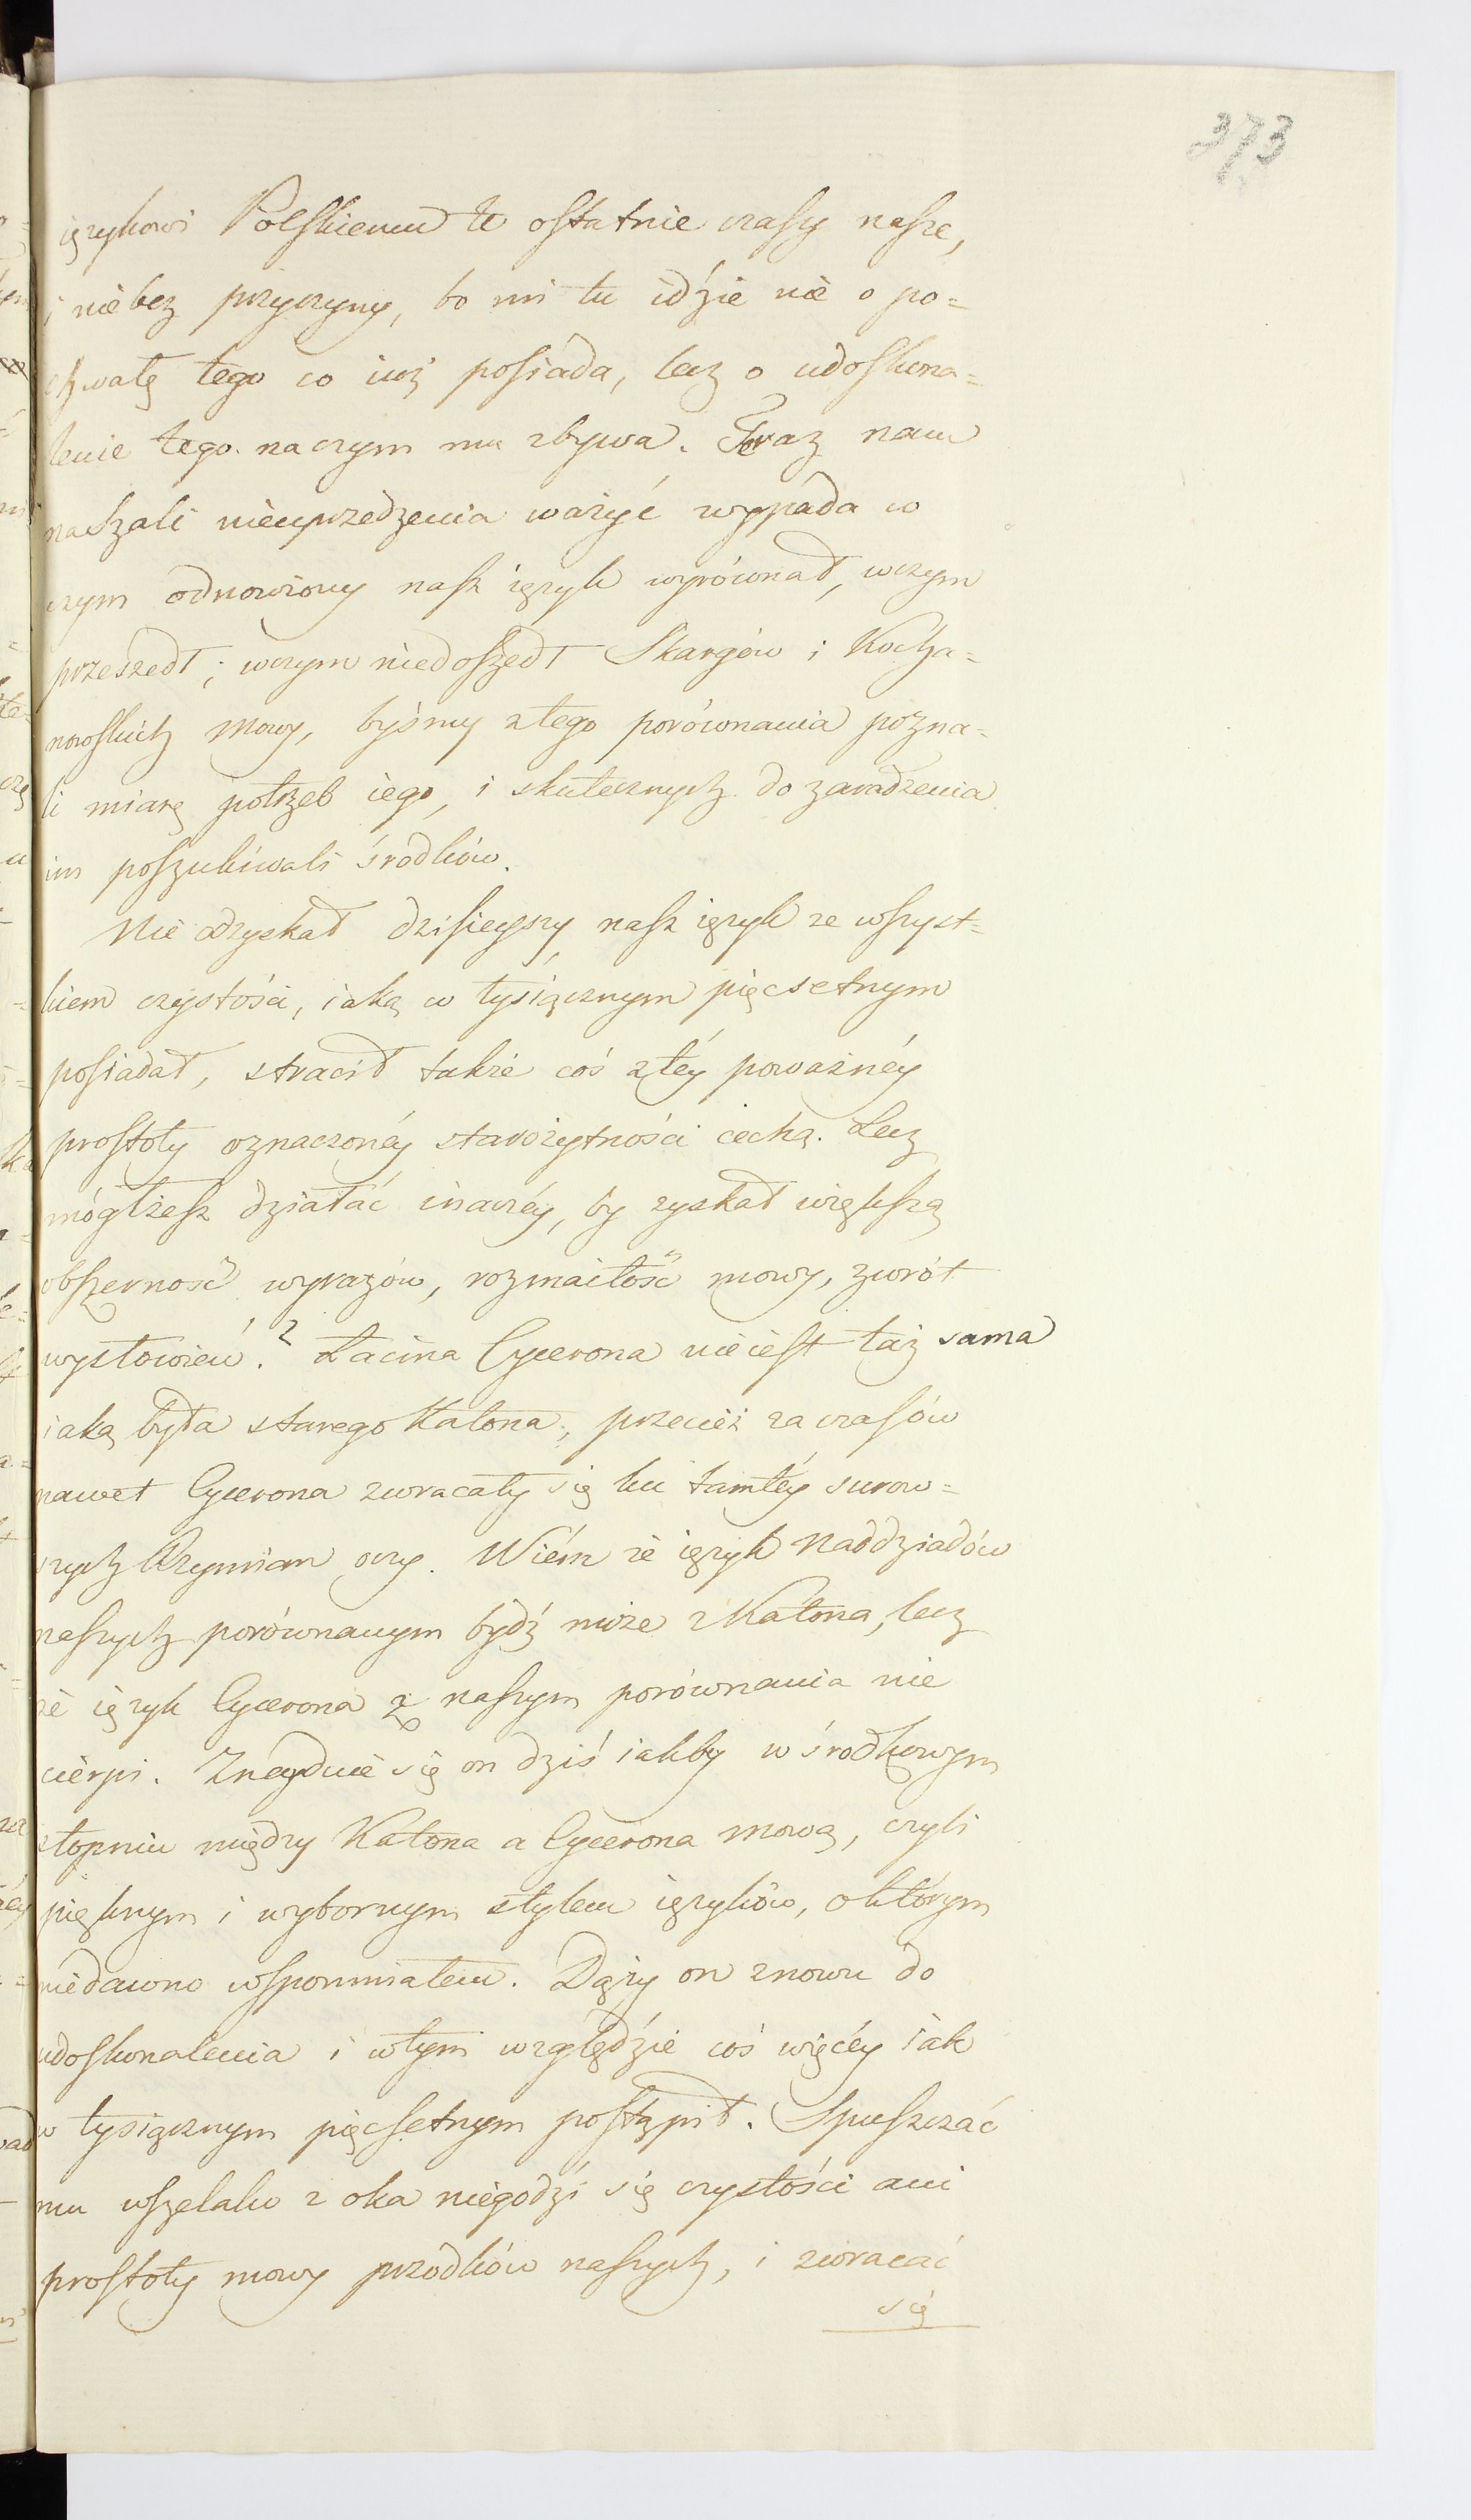 373
ięzykowi Polskiemu te ostatnie czasy nasze,
i niebez przyczyny, bo mi tu idzie nie o po=
chwałę tego co iuż posiada, lecz o udoskona=
lenie tego na czym mu zbywa. Teraz nam
naszali nieuprzedzenia ważyć wypada w
czym odnowiony nasz ięzyk wyrównał, wczym
przeszedł; wczym niedoszedł Skargów i Kocha=
nowskich mowy, byśmy ztego porównania pozna=
li miarę potrzeb iego, i skutecznych do zaradzenia
im poszukiwali środków.
Nie odzyskał dzisieyszy nasz ięzyk ze wszyst=
kiem czystości, iaką w tysiącznym pięćsetnym
posiadał, stracił także coś z téy poważnéy
prostoty oznaczonéy starożytności cechą. Lecz
mógłżesz działać inaczéy, by zyskał większą
obszerność wyrazów, rozmaitość mowy, zwrót
wysłowień? Łacina Cycerona nieiest taż sama
iaką była starego Katona, przecież za czasów
nawet Cycerona zwracały się ku tamtéy surow=
szych Rzymian oczy. Wiém że ięzyk naddziadów
naszych porównanym bydź może z Katona, lecz
że ięzyk Cycerona z naszym porównania nie
cierpi. Znayduie się on dziś iakby w środkowym
stopniu między Katona a Cycerona mową, czyli
pięknym i wybornym stylem ięzyków, o którym
niedawno wspomniałem. Dąży on znowu do
udoskonalenia i wtym względzie coś więcéy iak
w tysiącznym pięćsetnym postąpił. Spuszczać
mu wszelako z oka niegodzi się czystości ani
prostoty mowy przodków naszych, i zwracać
się